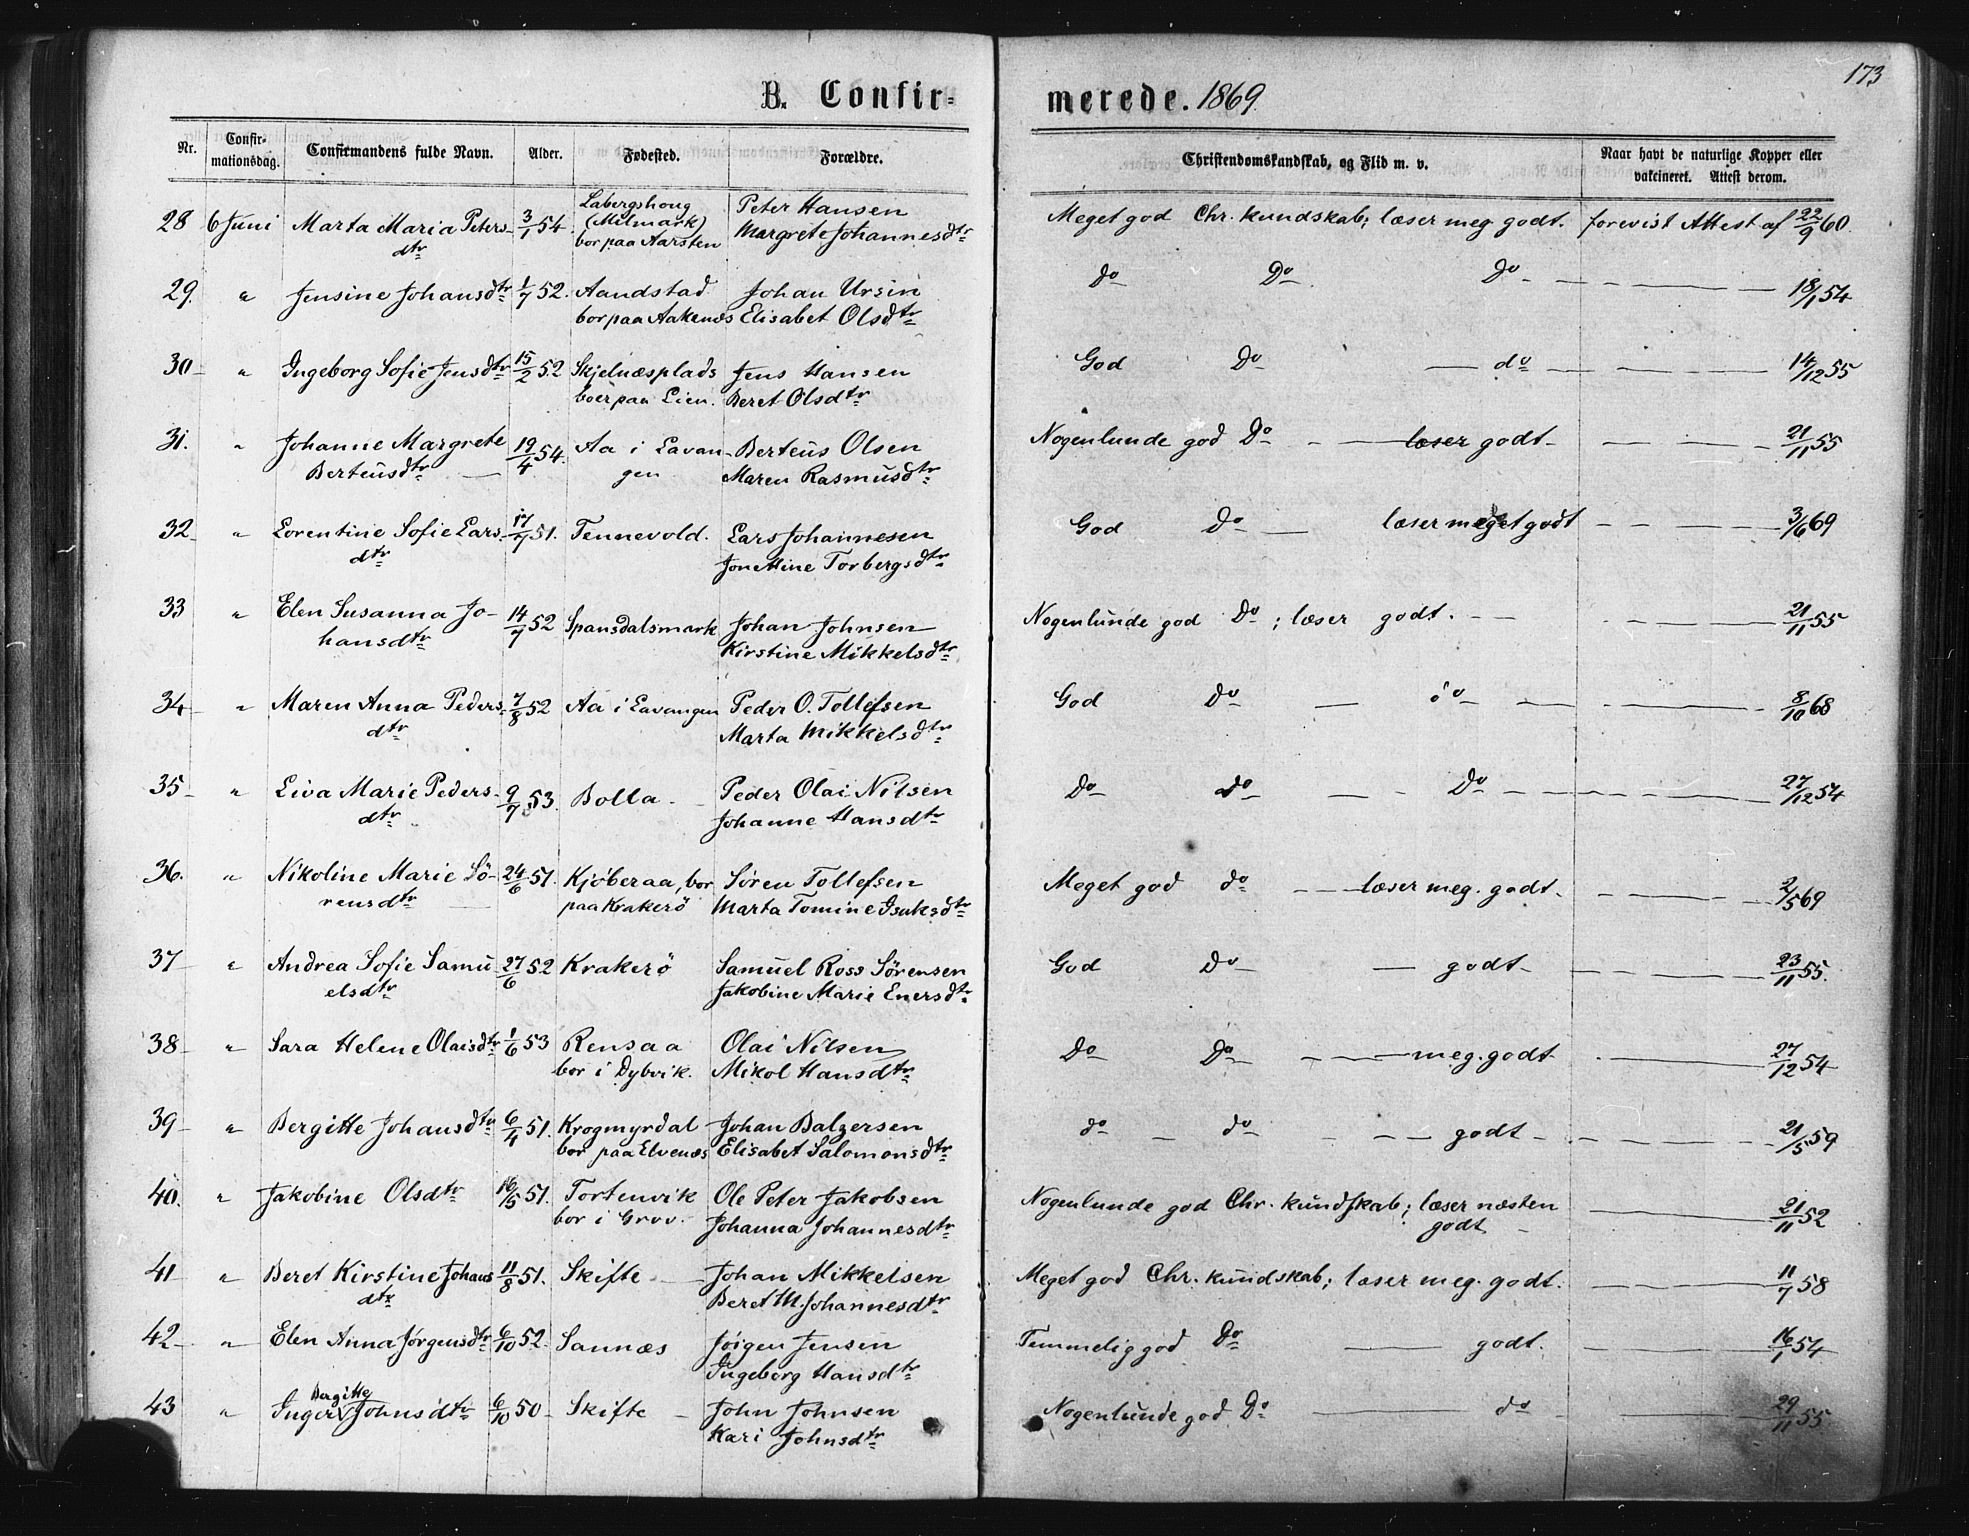 173
B. Confir- merede. 1869.
Nr. Confir- mationsdag. Confirmandens fulde Navn. Alder. Fødested. Forældre. Christendomskundskab, og Flid m. v. Naar havt de naturlige Kopper eller
vakcineret. Attest derom.
28 6 Juni Marta Maria Peters- 3/1 54. Labergshoug Peter Hansen Meget god Chr. kundskab; læser meg godt. forevist Attest af 22/9 60.
dtr (Melmark) Margrete Johannesdtr
bor paa Aarsten
29. " Jensine Johansdtr 1/7 52. Aandstad Johan Ursin Do Do Do 18/1 54
bor paa Aakenæs Elisabet Olsdtr
30 " Ingeborg Sofie Jensdtr 15/2 52 Skjelnæsplads Jens Hansen God Do do 14/12 55
boer paa Lien. Beret Olsdtr
31. " Johanne Margrete 19/4 54. Aa i Lavan- Berteus Olsen Nogenlunde god Do læser godt 21/11 55
Berteusdtr gen Maren Rasmusdtr
32 " Lorentine Sofie Lars- 17/7 51. Tennevold. Lars Johannesen God Do læser meget godt 3/6 69
dtr Jonettine Torbergsdtr
33 " Elen Susanna Jo- 14/7 52 Spansdalsmark Johan Johnsen Nogenlunde god Do; læser godt. 21/11 55
hansdtr Kirstine Mikkelsdtr
34 " Maren Anna Peders- 7/8 52 Aa i Lavangen Peder O. Tollefsen God Do do 8/10 68
dtr Marta Mikkelsdtr
35 " Liva Marie Peders- 9/7 53. Bolla. Peder Olai Nilsen Do do Do 27/12 54
dtr Johanne Hansdtr
36. " Nikoline Marie Sö- 24/6 51. Kjöberaa, bor Sören Tollefsen Meget god do læser meg. godt. 2/5 69
rensdtr paa Krakerö Marta Tomine Isaksdtr
37 " Andrea Sofie Samu 27/6 52 Krakerö Samuel Ross Sörensen God Do godt 23/11 55.
elsdtr Jakobine Marie Enersdtr
38 " Sara Helene Olaisdtr 1/6 53 Rensaa Olai Nilsen Do Do meg. godt 27/12 54
bor i Dybvik. Mikol Hansdtr
39 " Bergitte Johansdtr 6/4 51. Krogmyrdal Johan Balzersen do do godt 21/5 59
bor paa Elvenæs Elisabet Salomonsdtr
40. " Jakobine Olsdtr 16/5 51. Tortenvik Ole Peter Jakobsen Nogenlunde god Chr. kundskab; læser næsten 21/11 52
bor i Grov. Johanna Johannesdtr godt
41 " Beret Kirstine Johans 11/8 51. Skifte Johan Mikkelsen Meget god Chr. kundskab; læser meg. godt. 11/7 58
dtr Beret M. Johannesdtr
42 " Elen Anna Jörgensdtr 6/10 52. Sannæs Jörgen Jensen Temmelig god Do godt. 16/1 54
Ingeborg Hansdtr
43 " Inger Bergitte Johnsdtr 6/10 50 Skifte John Johnsen Nogenlunde god Do do 29/11 55
Kari Johnsdtr